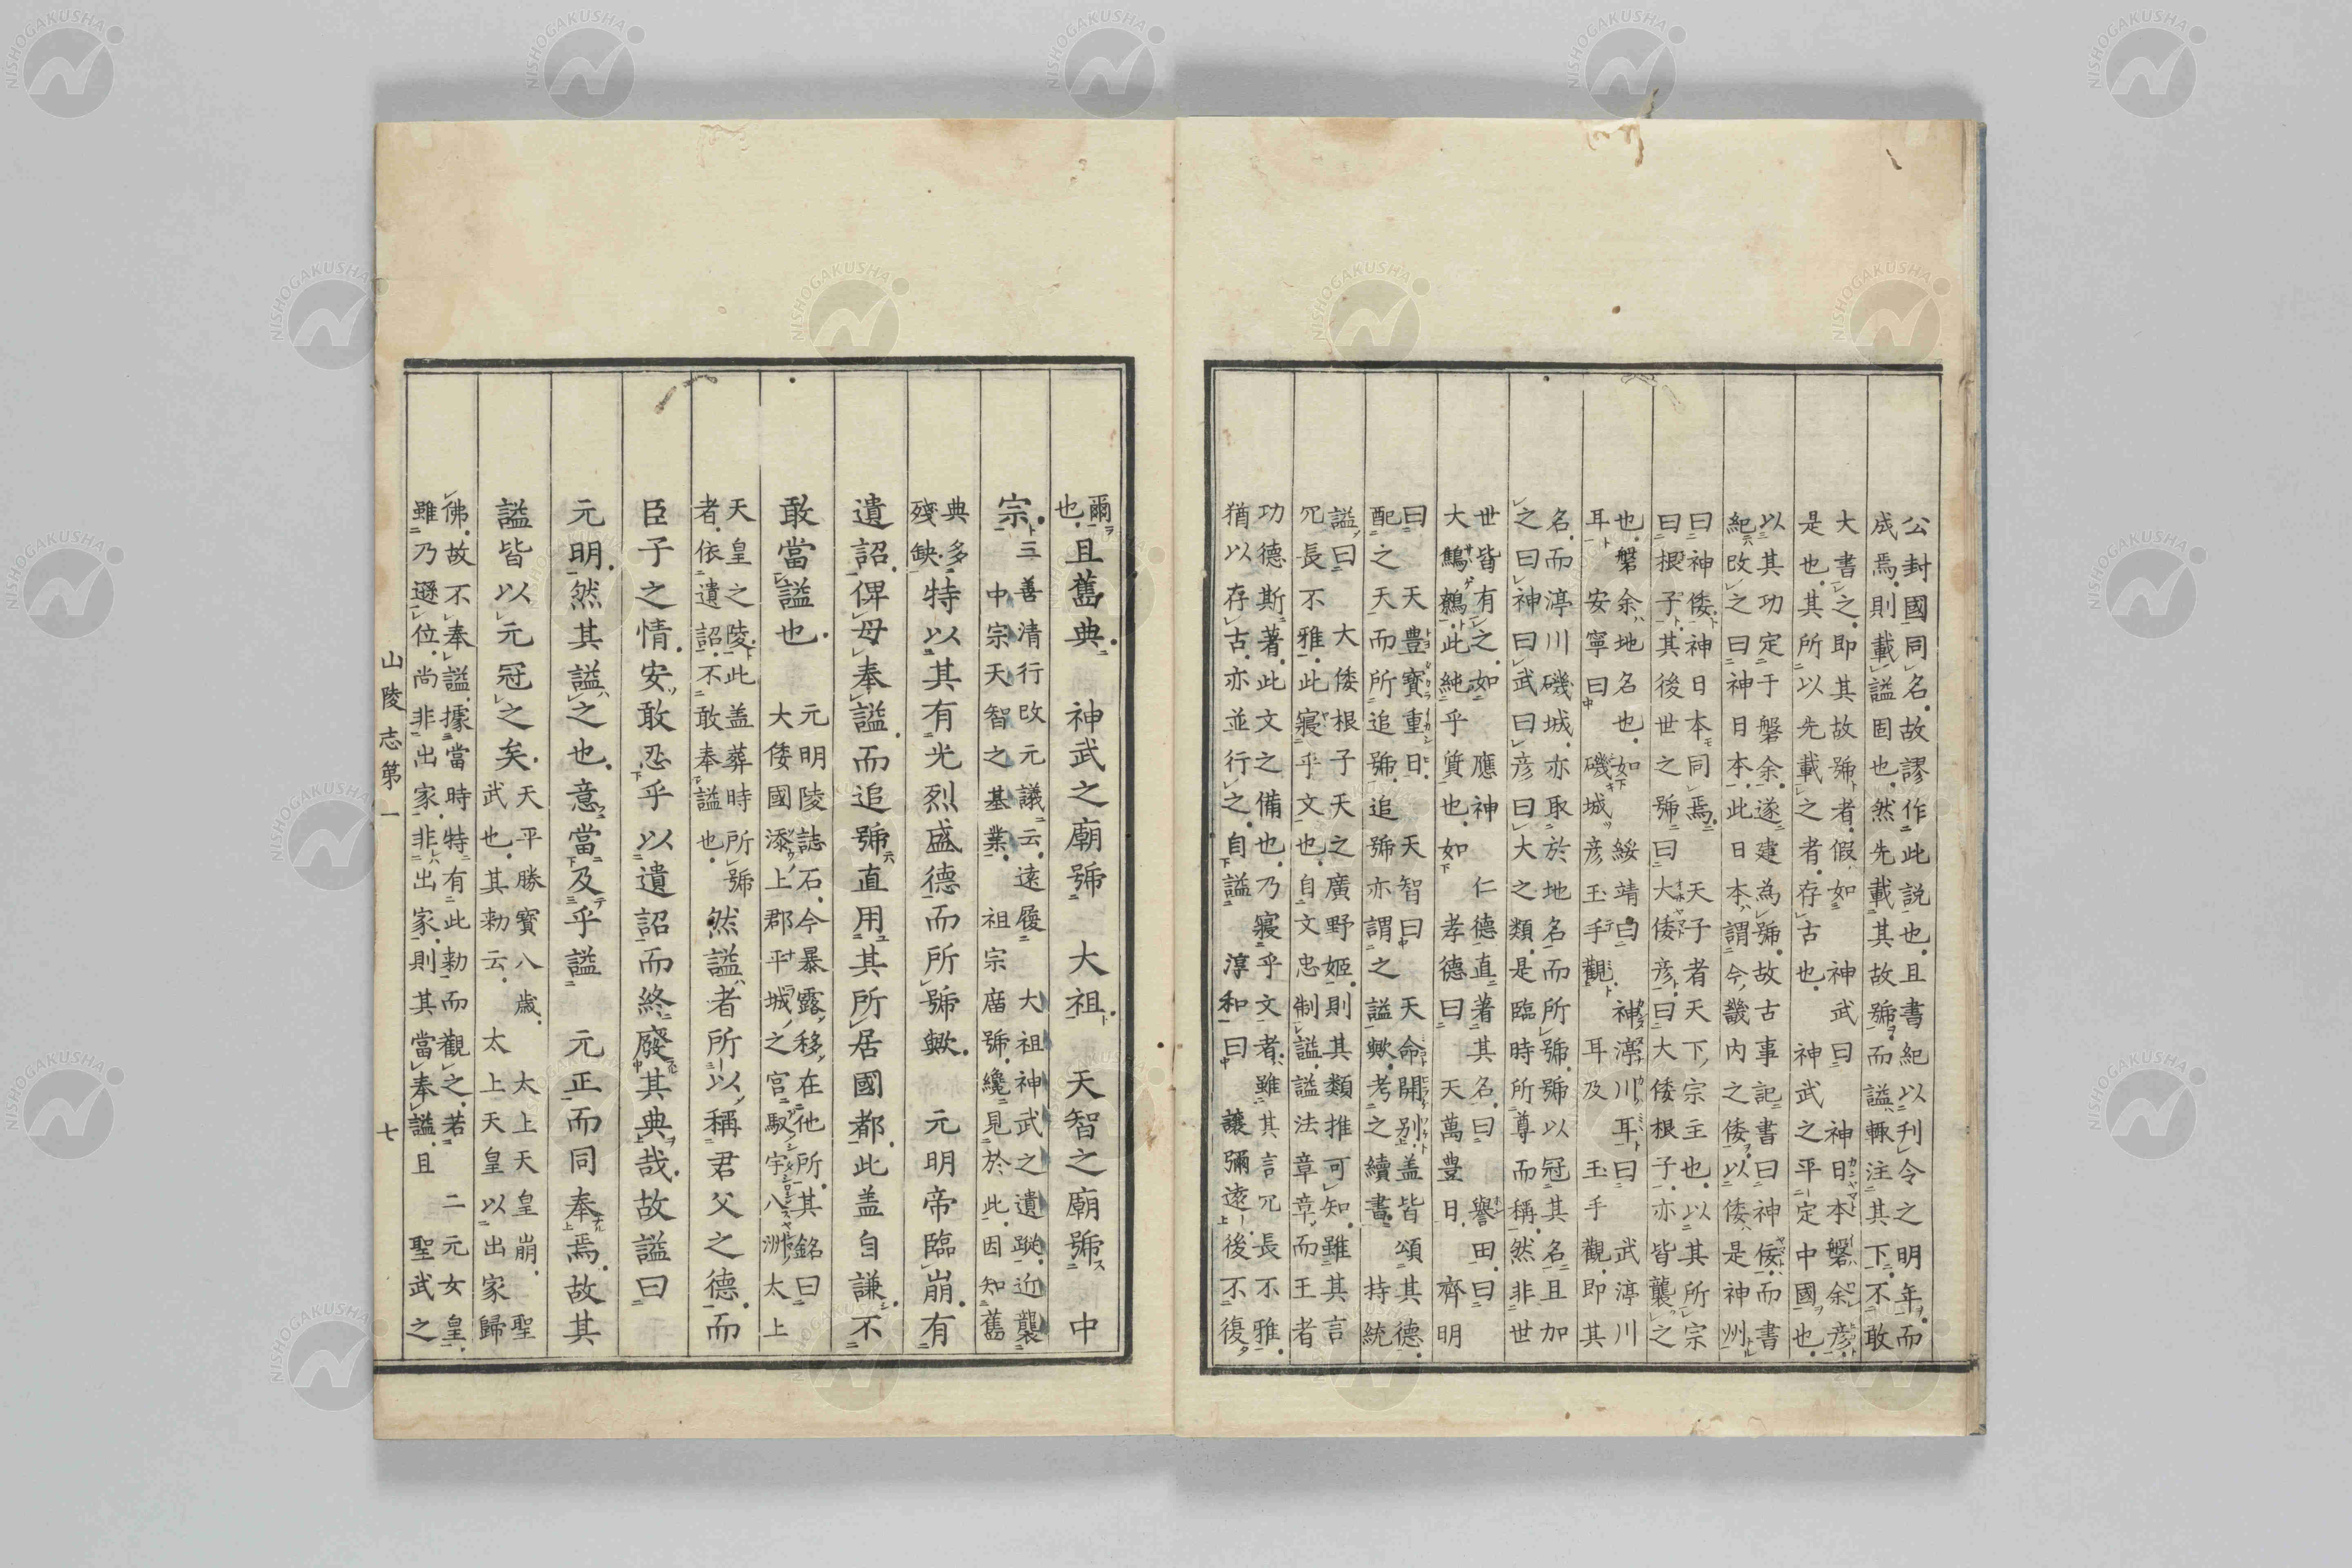 公封國同名故謬作此說也且書紀以刋令之明年而
成焉則載謚固也然先載其故號而謚輙注其下不敢
大書之即其故號者假如 神武曰 神日本磐余彦
是也其所以先載之者存古也 神武之平定中國也
以其功定于磐余遂建為號故古事記書曰神倭而書
紀改之曰神日本此日本謂今畿内之倭以倭是神州
曰神倭神日本同焉 天子者天下宗主也以其所宗
曰根子其後世之號曰大倭彦曰大倭根子亦皆襲之
也磐余地名也如 綏靖曰 神渟川耳曰 武渟川
耳 安寧曰 磯城彦玉手觀 耳及玉手觀即其
名而渟川磯城亦取於地名而所號號以冠其名且加
之曰神曰武曰彦曰大之類是臨時所尊而稱然非世
世皆有之如 應神 仁德直著其名曰 譽田曰
大鷦鷯此純乎質也如 孝德曰 天萬豊日 齊明
曰 天豊寶重日 天智曰 天命開別盖皆頌其德
配之天而所追號追號亦謂之謚歟考之續書 持統
謚曰 大倭根子天之廣野姬則其類推可知雖其言
冗長不雅此寢乎文也自文忠制謚謚法章章而王者
功德斯著此文之備也乃寢乎文者雖其言冗長不雅
猶以存古亦並行之自謚 淳和曰 讓彌遠後不復
爾也且舊典 神武之廟號 大祖 天智之廟號 中
宗三善清行改元議云遠履 大祖神武之遺蹤近襲
中宗天智之基業 祖宗廟號纔見於此因知舊
典多殘缺特以其有光烈盛德而所號歟 元明帝臨崩有
遺詔俾母奉謚而追號直用其所居國都此盖自謙不
敢當謚也 元明陵誌石今暴露移在他所其銘曰
大倭國添上郡平城之宮馭宇八洲太上
天皇之陵此盖葬時所號
者依遺詔不敢奉謚也 然謚者所以稱君父之德而
臣子之情安敢忍乎以遺詔而終廢其典哉故謚曰
元明然其謚之也意當及乎謚 元正而同奉焉故其
謚皆以元冠之矣 天平勝寳八歳 太上天皇崩聖
武也其勅云 太上天皇以出家歸
佛故不奉謚據當時特有此勅而觀之若 二元女皇
雖乃遜位尚非出家非出家則其當奉謚且 聖武之
山陵志第一 七